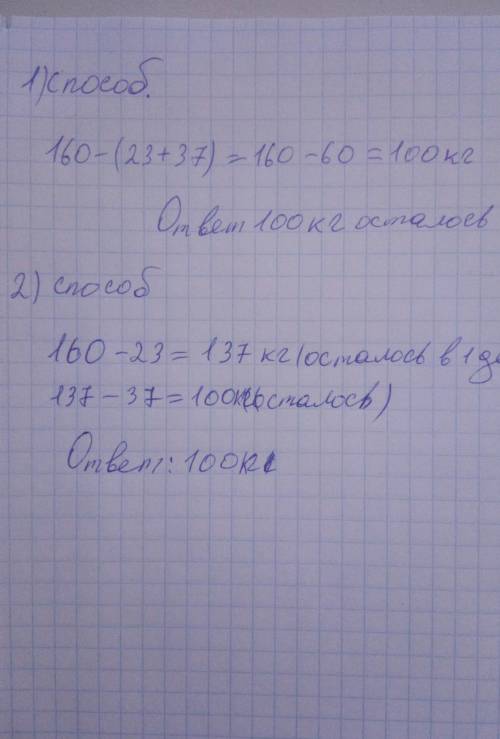 1) способ.
160-(23+37)=160-60=100кг
Ответ 100кг осталось
2) способ
160-23=137 кг (осталось в 1
137-37=100кг(осталось)
Ответ: 100кг